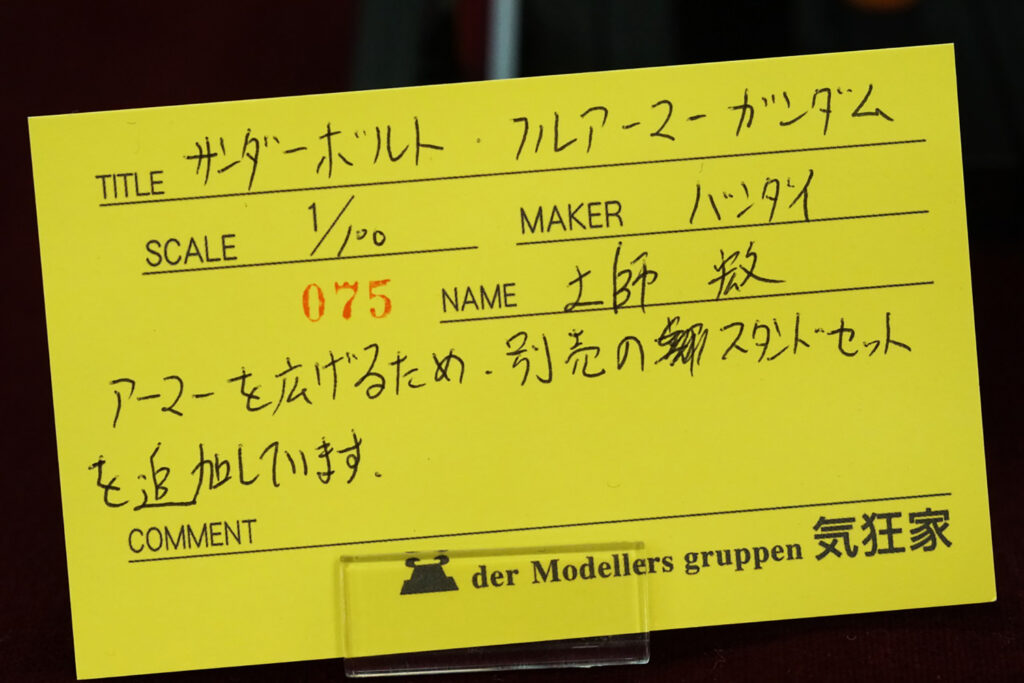 TITLE サンダーボルト・フルアーマーガンダム
SCALE 1/100 MAKER バンダイ
075 NAME 土師 敏
アーマーを広げるため、別売のスタンドセット
を追加しています。
COMMENT
der Modellers gruppen 気狂家